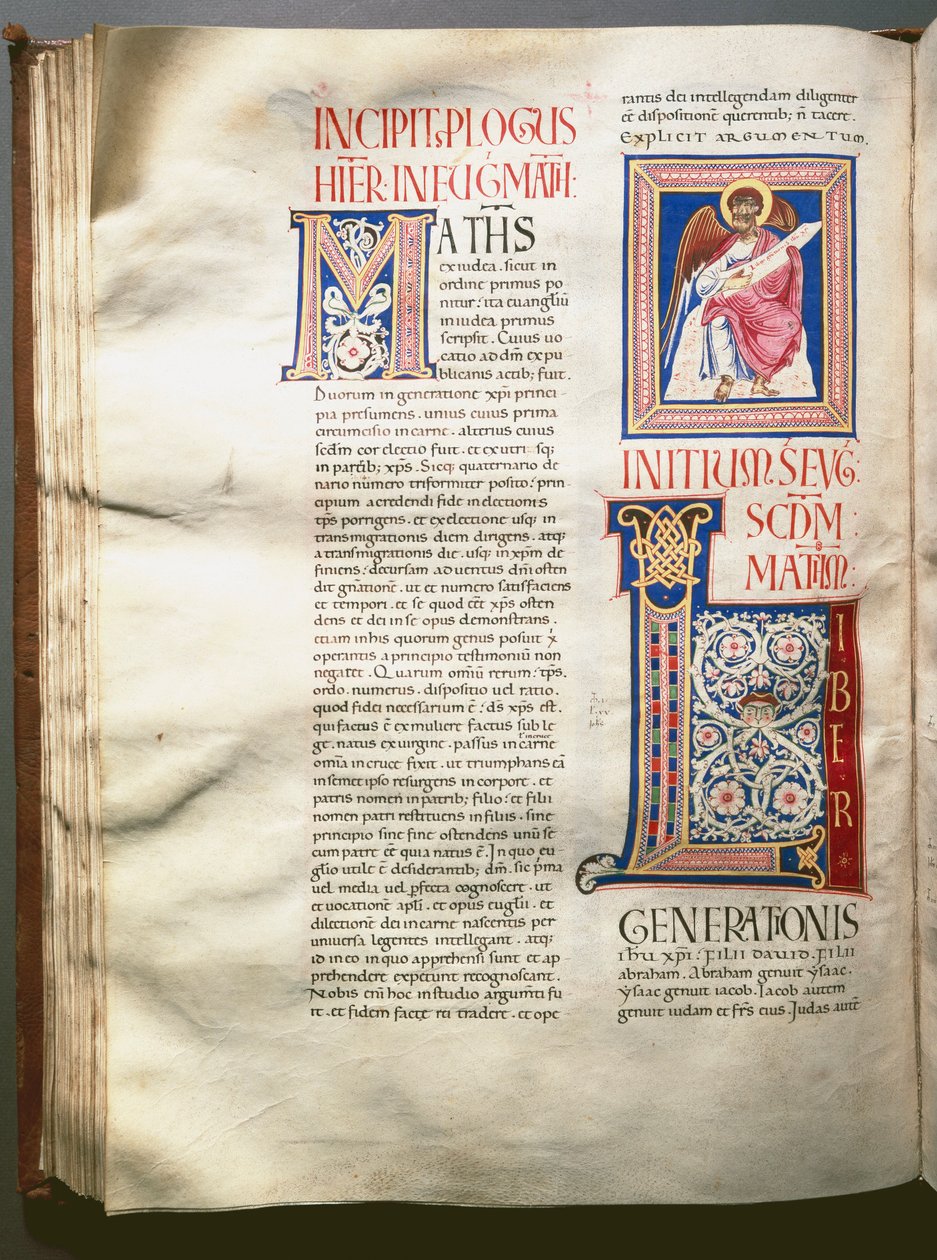 INCIPIT PLOGUS
HIER · IN EUG MATH ·
MATHS
ex iudea . sicut in
ordine primus po
nitur : ita euangliū
in iudea primus
scripsit . Cuius uo
catio ad dm̄ ex pu
blicanis actib; fuit .
Duorum in generatione xp̄i princi
pia presumens . unius cuius prima
circumcisio in carne . alterius cuius
scdm̄ cor electio fuit . et ex utrisq;
in partib; xp̄s . Sicq; quaternario de
nario numero triformiter posito : prin
cipium a credendi fide in electionis
tp̄s porrigens . et ex electione usq; in
transmigrationis diem dirigens . atq;
a transmigrationis die . usq; in xp̄m de
finiens : decursam aduentus dm̄i osten
dit gnationē . ut et numero satisfaciens
et tempori . et se quod eēt xp̄s osten
dens et dei in se opus demonstrans .
etiam in his quorum genus posuit x̄
operantis a principio testimoniū non
negaret . Quarum omiū rerum : tp̄s .
ordo . numerus . dispositio uel ratio .
quod fidei necessarium ē : ds̄ xp̄s est .
qui factus ē ex muliere factus sub le
ge . natus ex uirgine . passus in carne
omīa in cruce fixit . ut triumphans ea
in semet ipso resurgens in corpore . et
patris nomen in patrib; filio : et filii
nomen patri restituens in filiis . sine
principio sine fine ostendens unū se
cum patre eē quia natus ē . In quo eu
glio utile ē desiderantib; dm̄ . sic prima
uel media uel pfecta cognoscere . ut
et uocationē apl̄i . et opus euglii . et
dilectionē dei in carne nascentis per
universa legentes intellegant . atq;
id in eo in quo apprehensi sunt et ap
prehendere expetunt recognoscant .
Nobis em̄ hoc in studio argumti fu
it . et fidem facte rei tradere . et ope
rantis dei intellegendam diligenter
eē dispositionē querentib; n̄ tacere .
EXPLICIT ARGUMENTUM .
INITIUM S EUG :
SCDM :
MATHM :
LIBER
GENERATIONIS
ih̄u xp̄i : FILII dauid . FILII
abraham . Abraham genuit ysaac .
ysaac genuit iacob . Iacob autem
genuit iudam et frs̄ eius . Judas autē